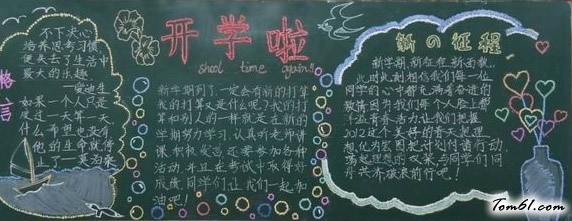 格言
不下决心
培养思考习惯
便失去了生活中
最大的乐趣
——爱迪生
如果一个人只是
度过一天算一天
什么希望也没有
他的生命就停
止了——莫泊桑
开学啦
shool time again!!
新学期到了,一定会有新的打算
我的打算又是什么呢?我的打
算和别人的一样就是在新的
学期努力学习,认真听老师讲
课积极发言,还要参加各种
活动,并且在考试中取得好
成绩。同学们,让我们一起加
油吧!
新の征程
新学期,新征程,新面貌..
此时此刻相信我们每一位
同学的心中都充满着奋进的
激情因为我们每个人脸上都
洋溢着青春活力让我们把握
2012这个美好的春天把理
想化为宏图把计划付诸行动
荡起理想的双桨与同学们同
舟共济破浪前行吧!
Tom61.com